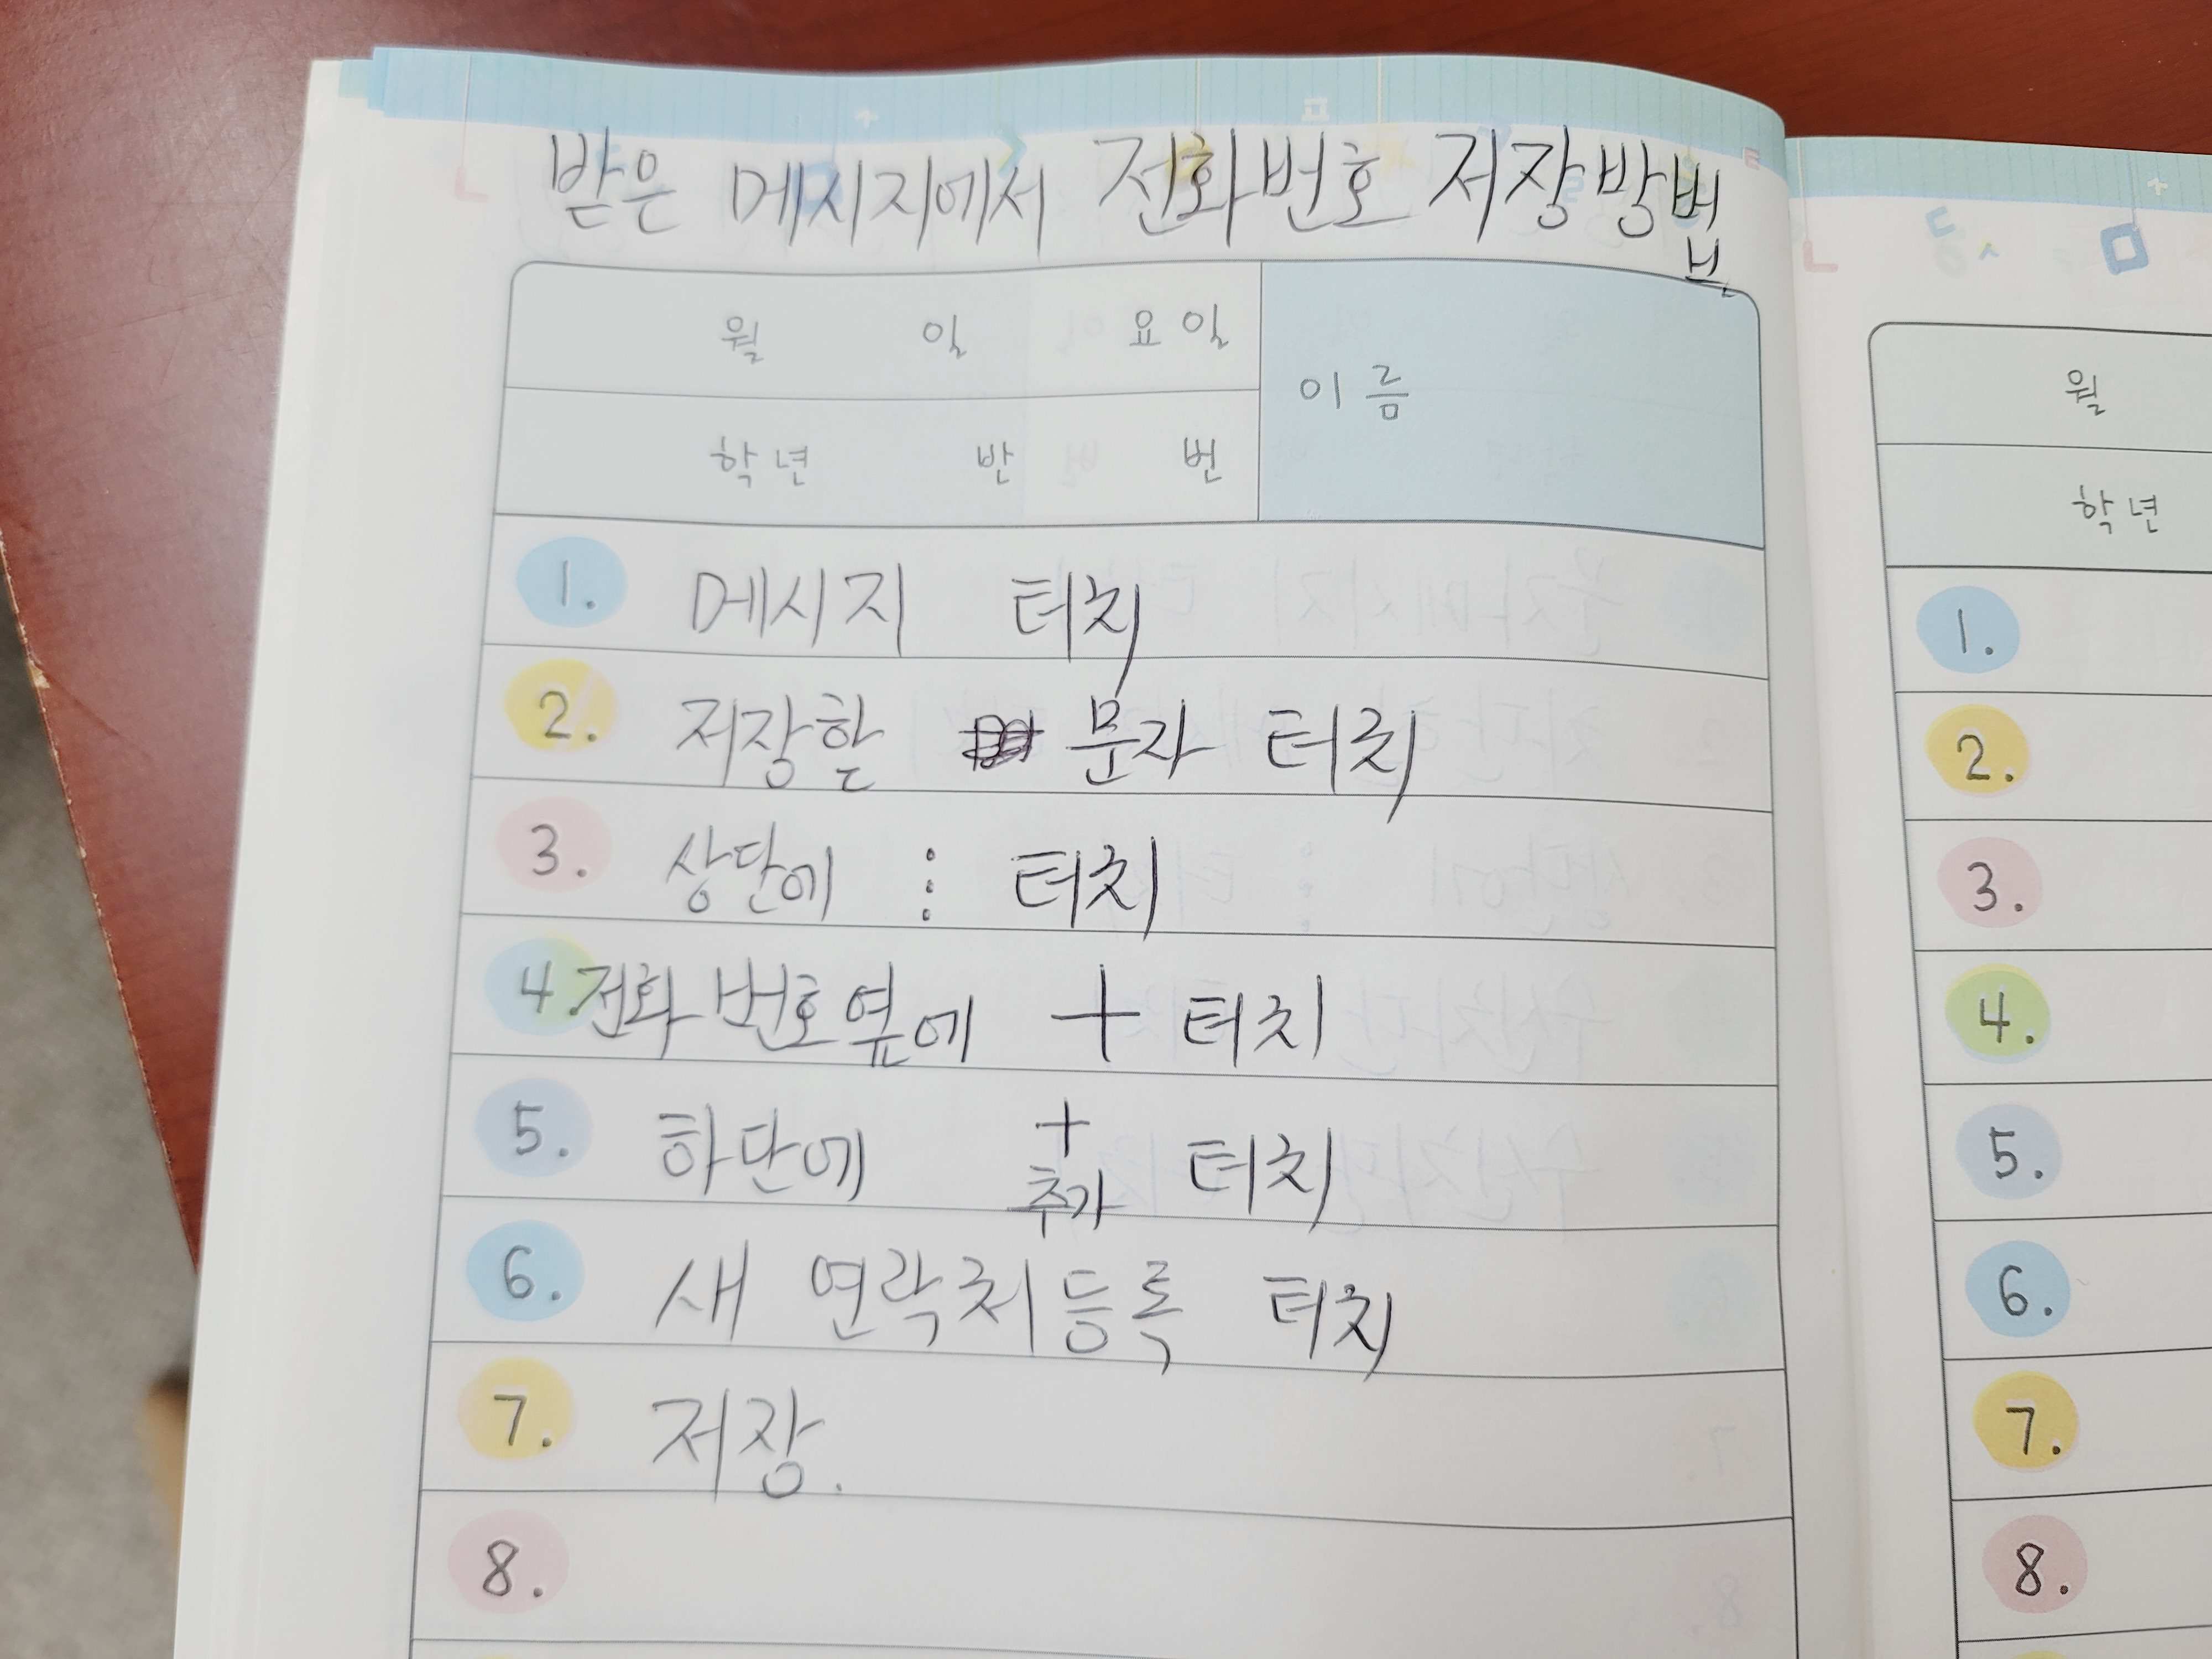 받은 메시지에서 전화번호 저장방법
월 일 요일
이름
학년 반 번
1. 메시지 터치
2. 저장할 문자 터치
3. 상단에 ⋮ 터치
4. 전화번호옆에 + 터치
5. 하단에 + 추가 터치
6. 새 연락처등록 터치
7. 저장.
8.
월
학년
1.
2.
3.
4.
5.
6.
7.
8.